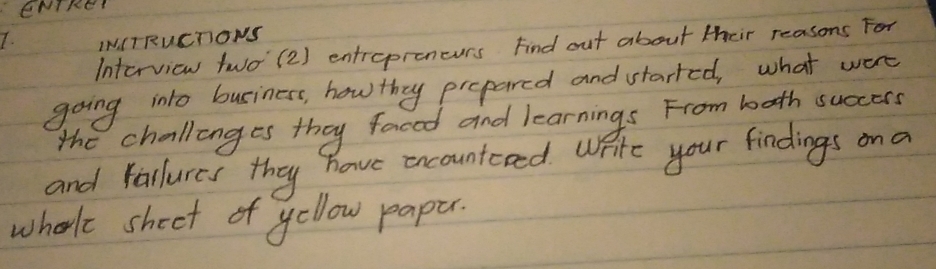 ENTRE
1.
INSTRUCTIONS
Interview two (2) entrepreneurs. Find out about their reasons For
going into business, how they prepared and started, what were
the challenges they faced and learnings From both success
and failures they have encountered. Write your findings on a
whole sheet of yellow paper.